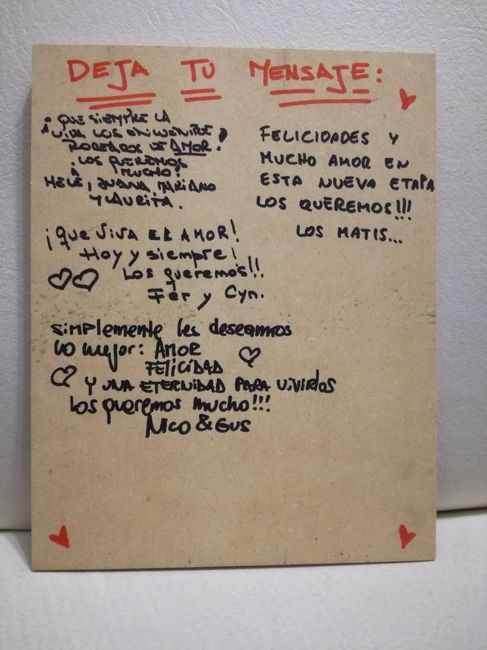 DEJA TU MENSAJE:
¡QUE SIEMPRE LA
VIDA LOS ENCUENTRE
RODEADOS DE AMOR!
¡LOS QUEREMOS
MUCHO!
HELE, JUANA, MARIANO
Y LAURITA.
FELICIDADES Y
MUCHO AMOR EN
ESTA NUEVA ETAPA
LOS QUEREMOS!!!
LOS MATIS...
¡Que VIVA EL AMOR!
Hoy y siempre!
Los queremos!!
Fer y Cyn.
simplemente les deseamos
lo mejor: AMOR
FELICIDAD
Y UNA ETERNIDAD PARA VIVIRLOS
Los queremos mucho!!!
Nico & GUS